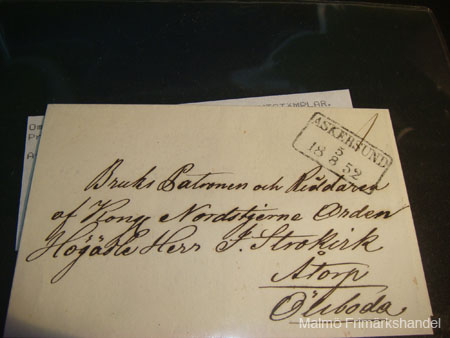 STÄMPLAR.
ASKERSUND
5
18 8 52
Bruks Patronen och Riddaren
af Kong Nordstjerne Orden
Högädle Herr J. Strokirk
Åtorp
Öleboda
Malmö Frimärkshandel